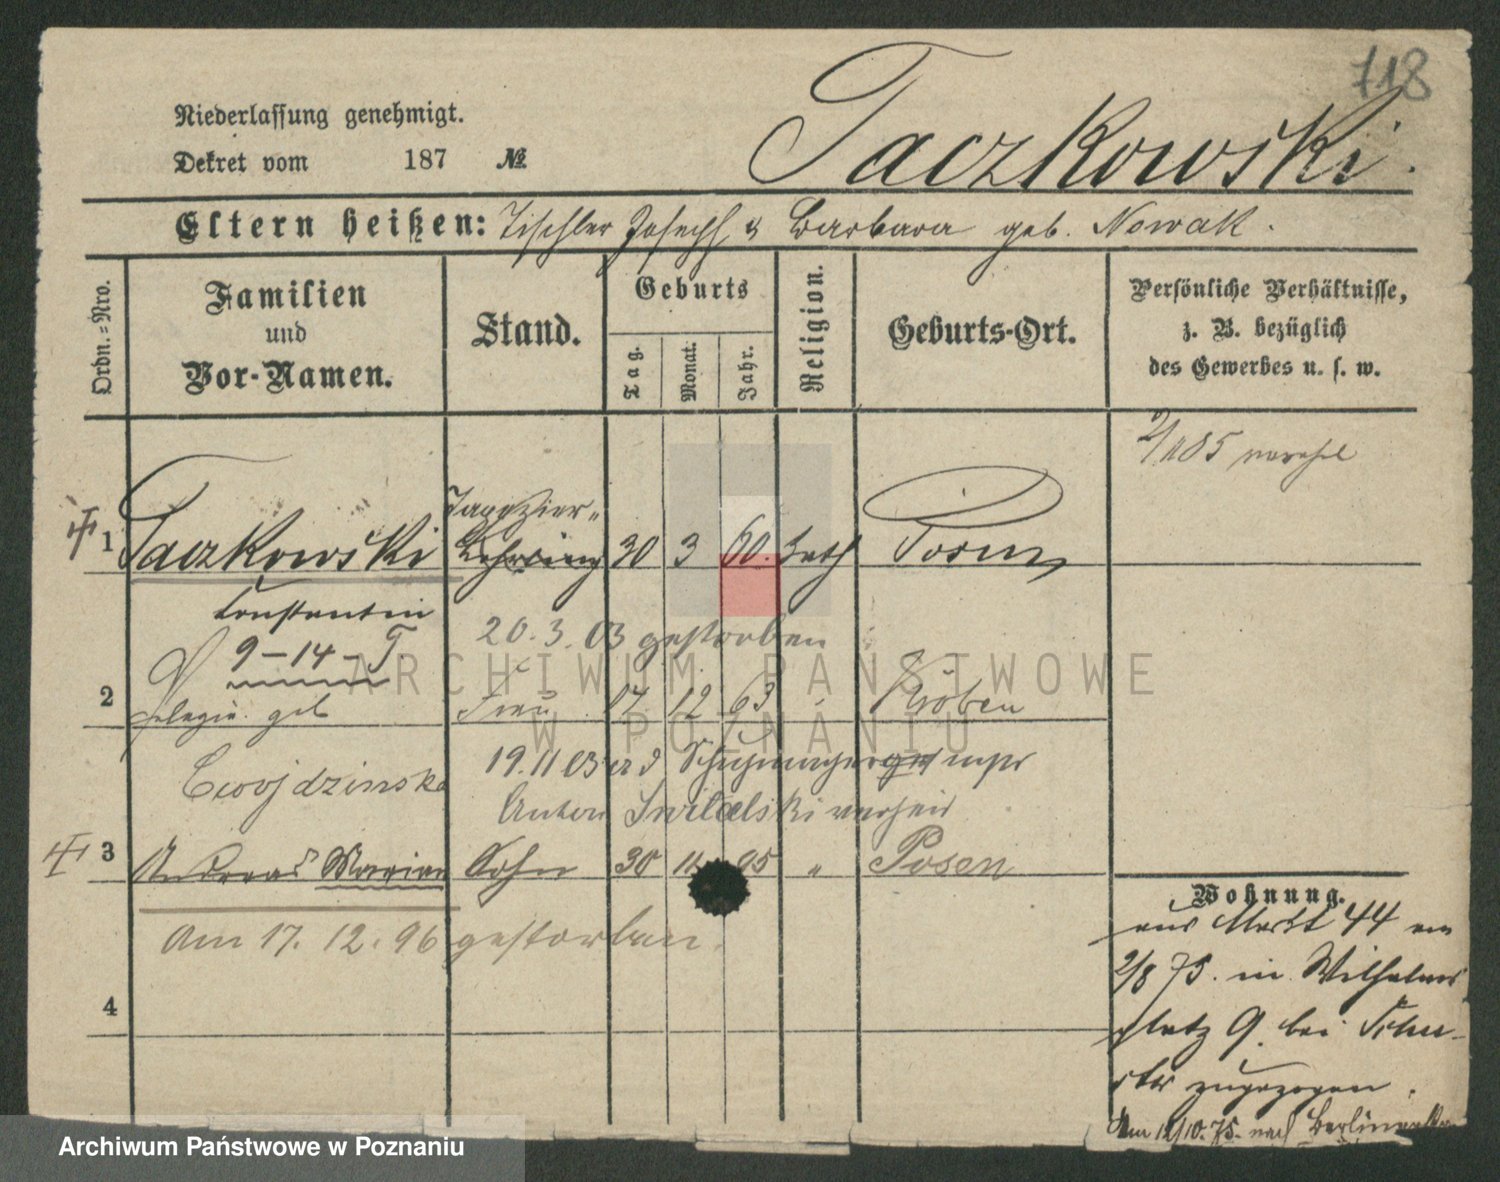 718
Niederlassung genehmigt.
Taczkowski.
Dekret vom 187 №
Eltern heißen: Tischler Joseph & Barbara geb. Nowak.
Ordn.=Nro.
Familien und Vor-Namen.
Stand.
Geburts
Tag.
Monat.
Jahr.
Religion.
Geburts-Ort.
Persönliche Verhältnisse,
z. B. bezüglich
des Gewerbes u. s. w.
2/1185
1 Taczkowski Tapezier- Lehrling 30 3 60. kath Posen
Constantin
20.3.03 gestorben
9-14-T.
2 Pelagia geb Frau 17 12 63 " Kröben
19.11.03
Cwojdzinska
Anton Switalski
3 Andreas Marian Sohn 30 11 95 " Posen
Am 17.12.96 gestorben.
4
Wohnung.
aus Markt 44 am
2/8 75. in Wilhelms
platz 9. bei
zugezogen.
Am 12/10.75. nach
ARCHIWUM PAŃSTWOWE
W POZNANIU
Archiwum Państwowe w Poznaniu